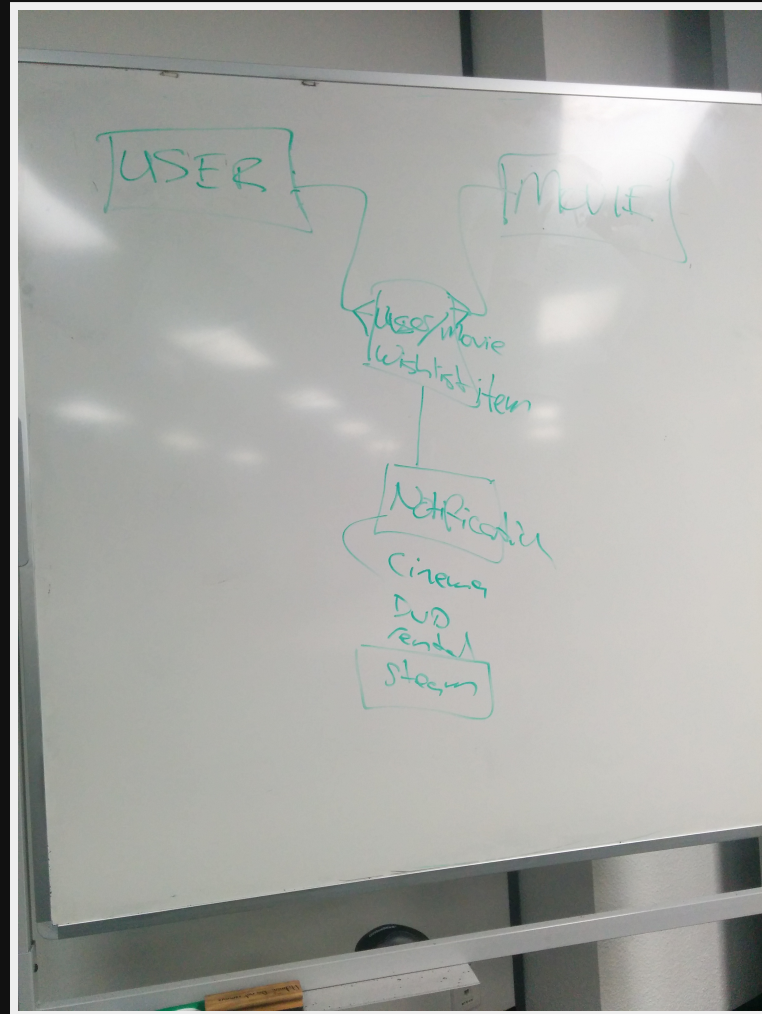 USER
MOVIE
User/Movie
Wishlist item
Notification
Cinema
DVD
rental
Steam